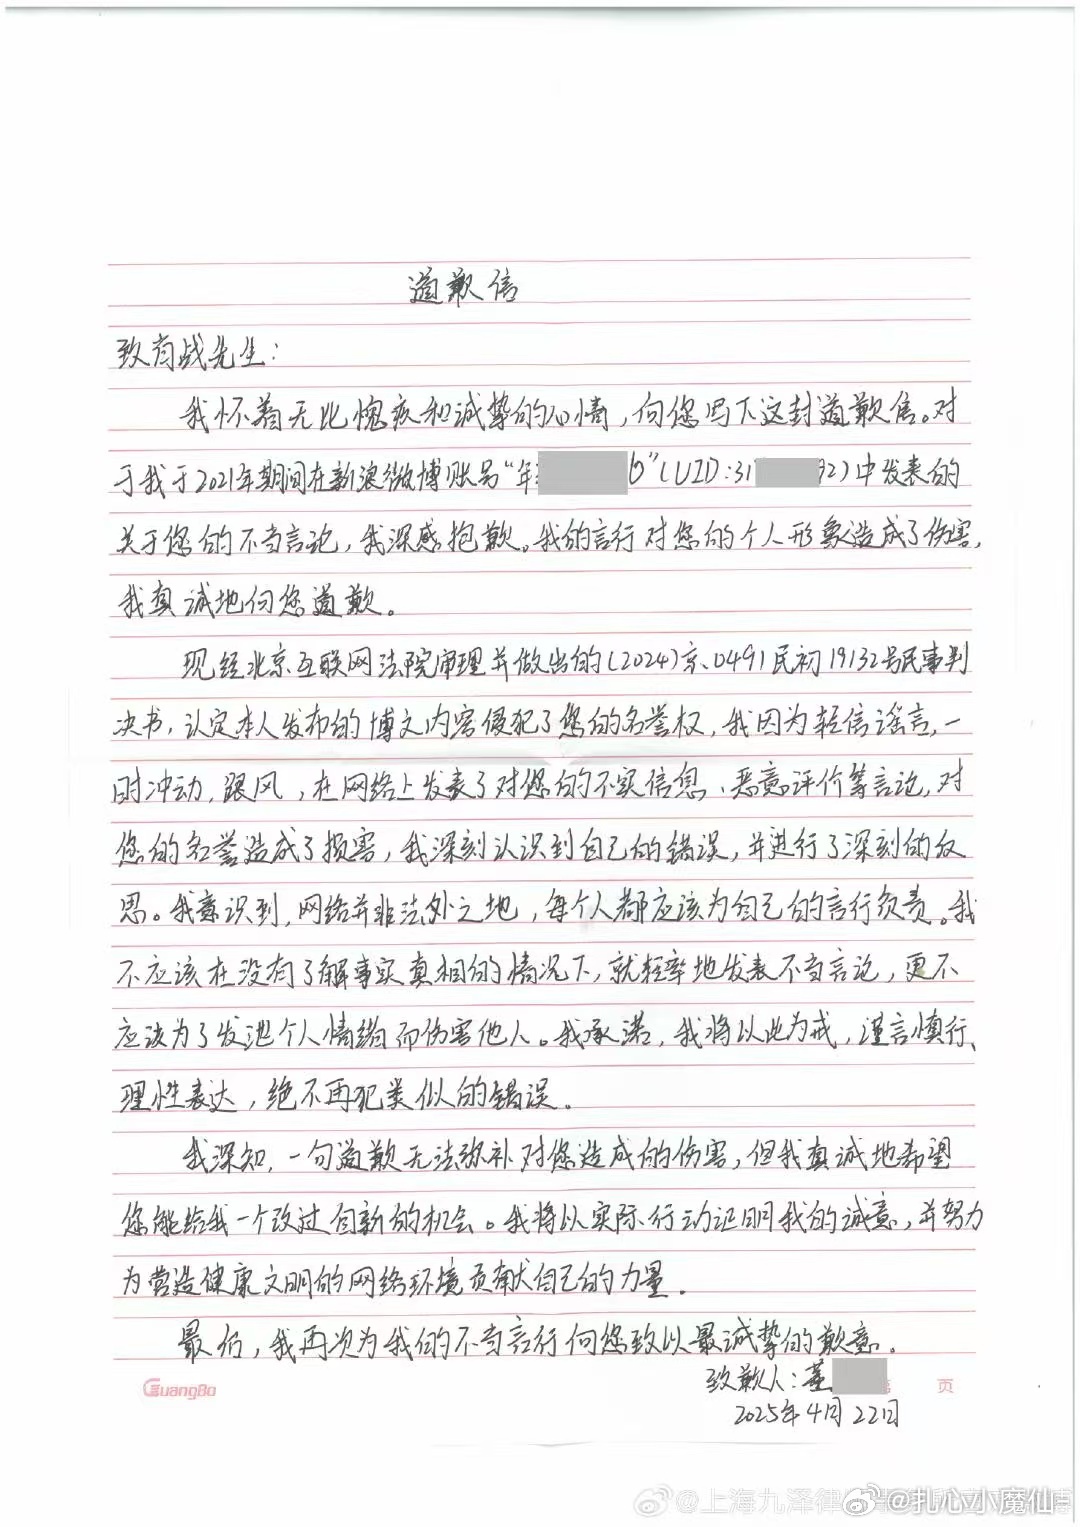 道歉信
致肖战先生：
我怀着无比愧疚和诚挚的心情，向您写下这封道歉信。对
于我于2021年期间在新浪微博账号“年 "(UID:31 92)中发表的
关于您的不当言论，我深感抱歉。我的言行对您的个人形象造成了伤害，
我真诚地向您道歉。
现经北京互联网法院审理并做出的(2024)京0491民初19132号民事判
决书，认定本人发布的博文内容侵犯了您的名誉权，我因为轻信谣言，一
时冲动，跟风，在网络上发表了对您的不实信息、恶意评价等言论，对
您的名誉造成了损害，我深刻认识到自己的错误，并进行了深刻的反
思。我意识到，网络并非法外之地，每个人都应该为自己的言行负责。我
不应该在没有了解事实真相的情况下，就轻率地发表不当言论，更不
应该为了发泄个人情绪而伤害他人。我承诺，我将以此为戒，谨言慎行、
理性表达，绝不再犯类似的错误。
我深知，一句道歉无法弥补对您造成的伤害，但我真诚地希望
您能给我一个改过自新的机会。我将以实际行动证明我的诚意，并努力
为营造健康文明的网络环境贡献自己的力量。
最后，我再次为我的不当言行向您致以最诚挚的歉意。
致歉人：董
GuangBo 页
2025年4月22日
@上海九泽律 @扎心小魔仙